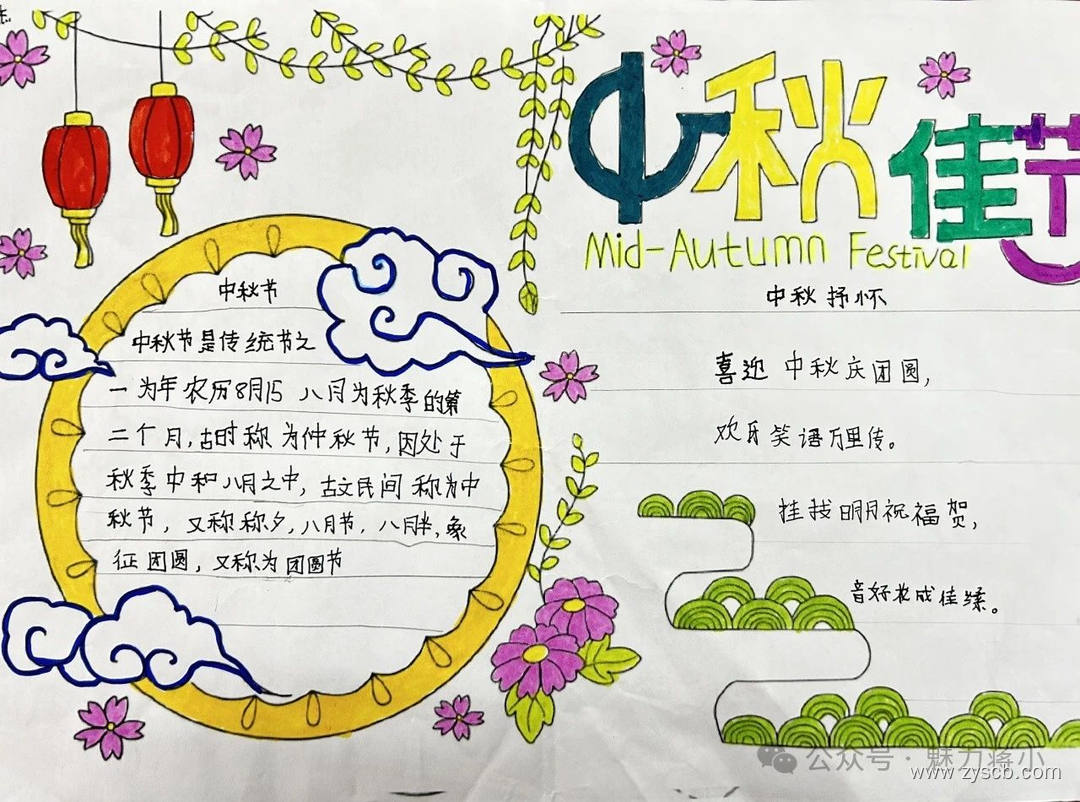 中秋佳节
Mid-Autumn Festival
中秋节
中秋节是传统节之
一 为年农历8月15 八月为秋季的第
二个月,古时称为仲秋节,因处于
秋季中和八月之中,古文民间称为中
秋节,又称称夕,八月节,八月半,象
征团圆,又称为团圆节
中秋抒怀
喜迎中秋庆团圆,
欢乐笑语万里传。
挂我明月祝福贺,
音好 成佳
公众号·魅力蒋小
www.zyscb.com